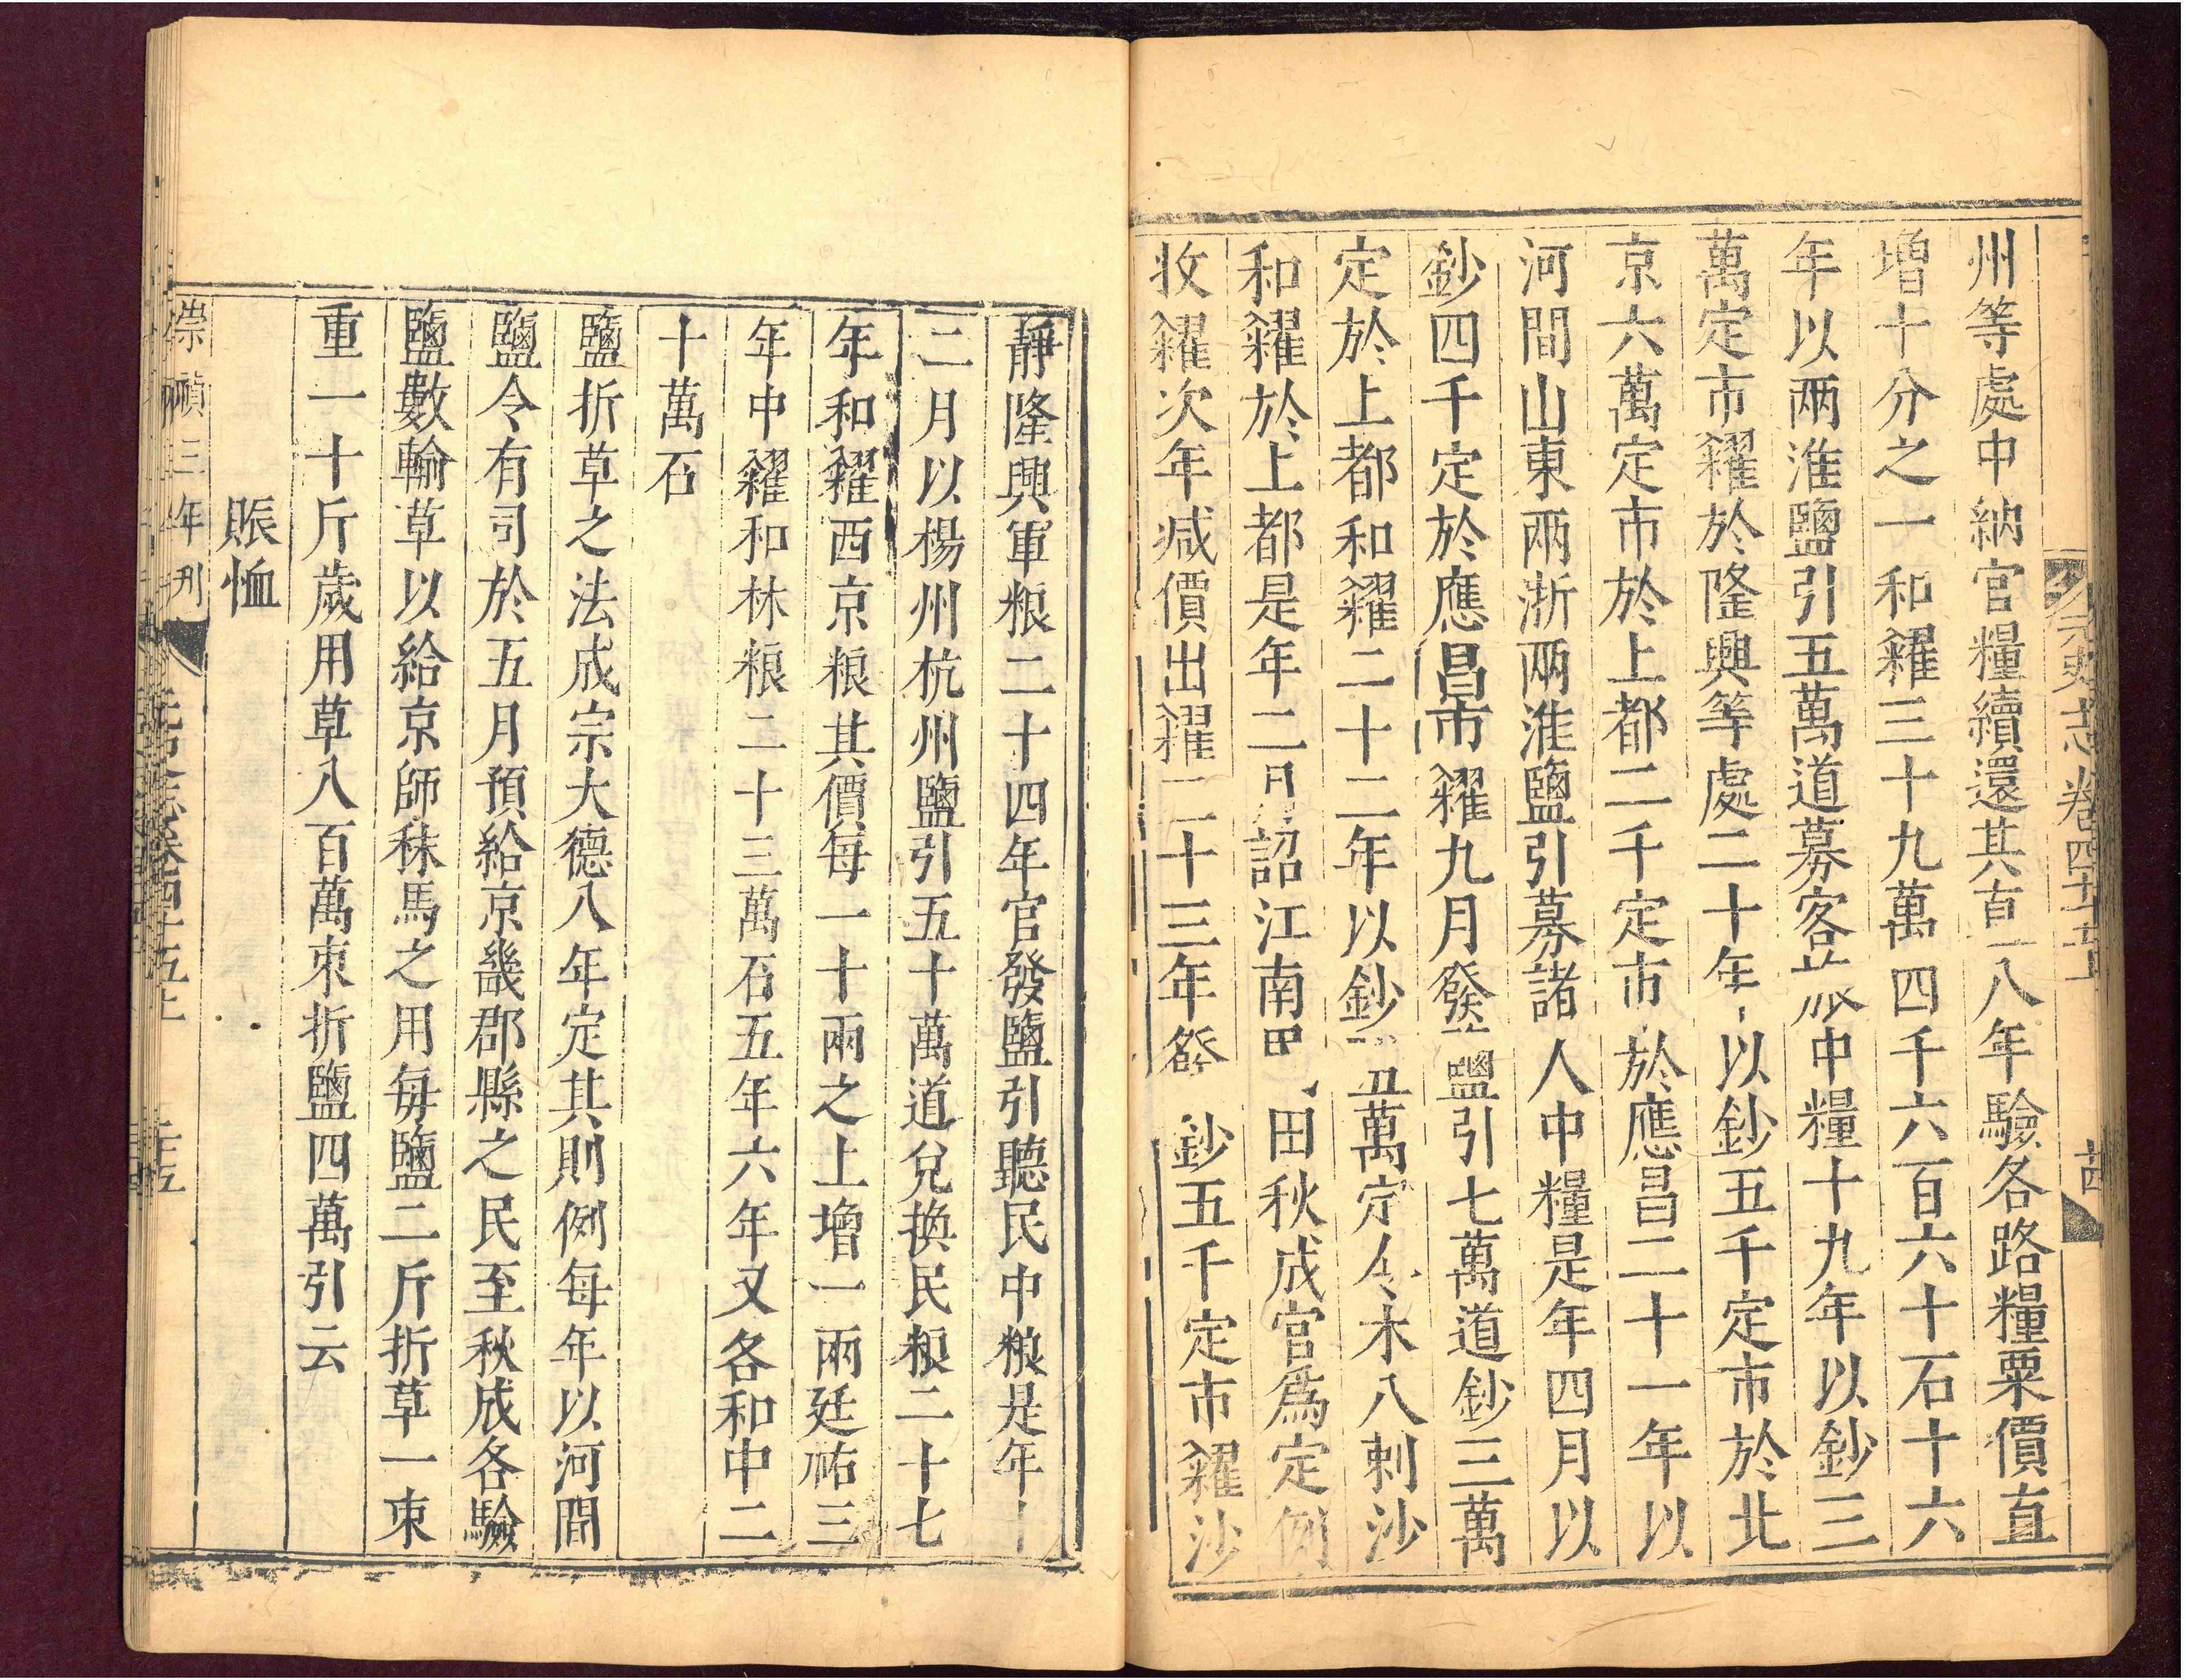 元史志卷四十五上
廿四
州等處中納官糧續還其直八年驗各路糧粟價直
增十分之一和糴三十九萬四千六百六十石十六
年以兩淮鹽引五萬道募客旅中糧十九年以鈔三
萬定市糴於隆興等處二十年以鈔五千定市於北
京六萬定市於上都二千定市於應昌二十一年以
河間山東兩浙兩淮鹽引募諸人中糧是年四月以
鈔四千定於應昌市糴九月發鹽引七萬道鈔三萬
定於上都和糴二十二年以鈔五萬定令木八剌沙
和糴於上都是年二月詔江南田秋成官爲定例
收糴次年减價出糴二十三年發鈔五千定市糴沙
靜隆興軍粮二十四年官發鹽引聽民中粮是年十
二月以楊州杭州鹽引五十萬道兌換民粮二十七
年和糴西京粮其價每一十兩之上增一兩延祐三
年中糴和林粮二十三萬石五年六年又各和中二
十萬石
鹽折草之法成宗大德八年定其則例每年以河間
鹽令有司於五月預給京畿郡縣之民至秋成各驗
鹽數輸草以給京師秣馬之用每鹽二斤折草一束
重一十斤歲用草八百萬束折鹽四萬引云
賑恤
崇禎三年刊
元史志卷四十五上
二十五